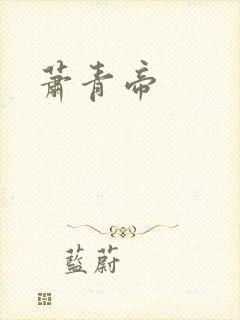 蕭青帝
藍蔚